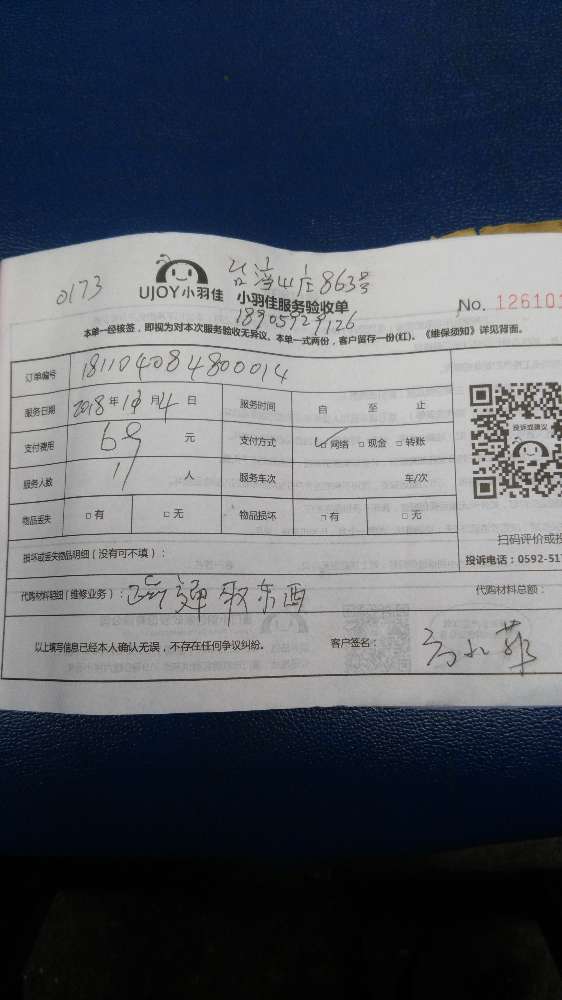 0173
UJOY小羽佳
山庄863号
小羽佳服务验收单
No. 126101
18905929126
本单一经核签，即视为对本次服务验收无异议。本单一式两份，客户留存一份(红)。《维保须知》详见背面。
订单编号 181104084800014
服务日期 2018年11月4日 服务时间 自 至 止
支付费用 元 支付方式 ☑网络 □现金 □转账
投诉或建议
服务人数 1 人 服务车次 车/次
物品丢失 □有 □无 物品损坏 □有 □无
扫码评价或投
损坏或丢失物品明细（没有可不填）：
投诉电话：0592-517
代购材料明细（维修业务）： 疏通 取东西
代购材料总额：
以上填写信息已经本人确认无误，不存在任何争议纠纷。 客户签名：